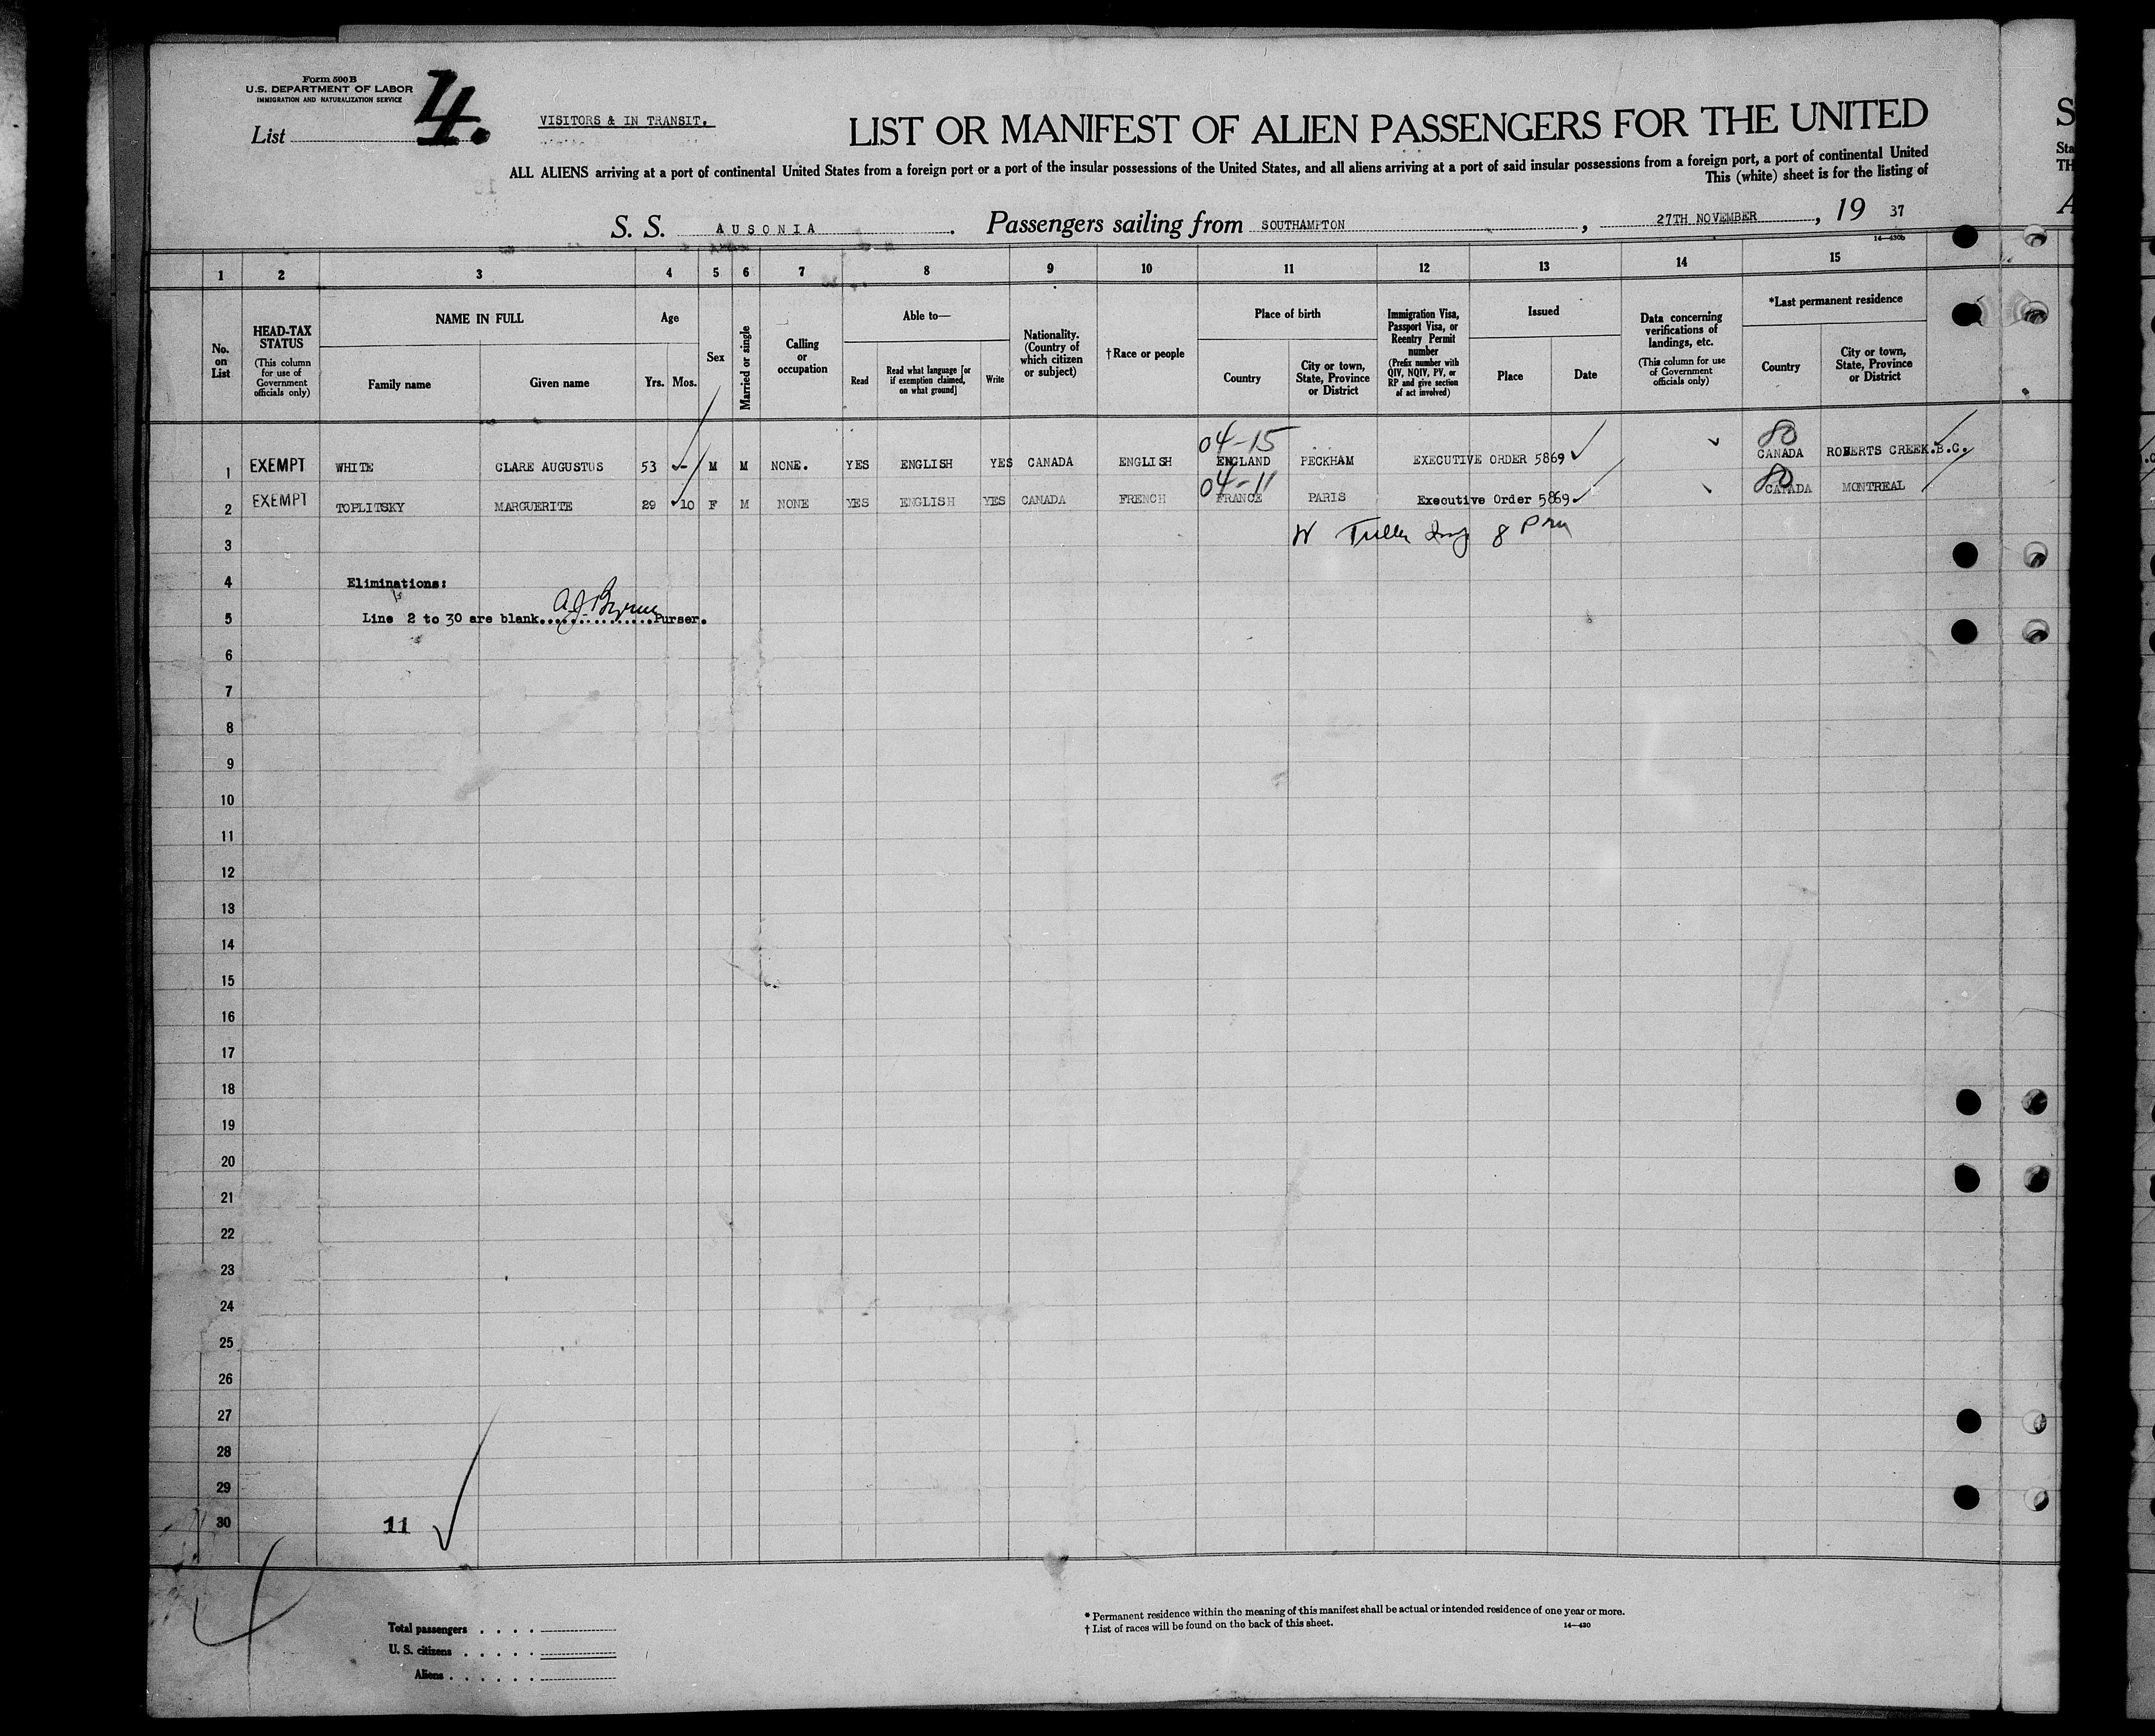 Form 500 B
U.S. DEPARTMENT OF LABOR
IMMIGRATION AND NATURALIZATION SERVICE
List 4.
VISITORS & IN TRANSIT.
LIST OR MANIFEST OF ALIEN PASSENGERS FOR THE UNITED S
ALL ALIENS arriving at a port of continental United States from a foreign port or a port of the insular possessions of the United States, and all aliens arriving at a port of said insular possessions from a foreign port, a port of continental United Sta
This (white) sheet is for the listing of TH
S. S. AUSONIA. Passengers sailing from SOUTHAMPTON, 27TH NOVEMBER, 19 37 A
14—430b
1 2 3 4 5 6 7 8 9 10 11 12 13 14 15
No. on List
HEAD-TAX STATUS (This column for use of Government officials only)
NAME IN FULL
Family name
Given name
Age
Yrs. Mos.
Sex
Married or single
Calling or occupation
Able to—
Read
Read what language [or if exemption claimed, on what ground]
Write
Nationality. (Country of which citizen or subject)
†Race or people
Place of birth
Country
City or town, State, Province or District
Immigration Visa, Passport Visa, or Reentry Permit number (Prefix number with QIV, NQIV, PV, or RP and give section of act involved)
Issued
Place
Date
Data concerning verifications of landings, etc. (This column for use of Government officials only)
*Last permanent residence
Country
City or town, State, Province or District
04-15 80
1 EXEMPT WHITE CLARE AUGUSTUS 53 - M M NONE. YES ENGLISH YES CANADA ENGLISH ENGLAND PECKHAM EXECUTIVE ORDER 5869 CANADA ROBERTS CREEK.B.C.
04-11 80
2 EXEMPT TOPLITSKY MARGUERITE 29 10 F M NONE YES ENGLISH YES CANADA FRENCH FRANCE PARIS Executive Order 5869 CANADA MONTREAL
3 8 Pm
4 Eliminations:
5 Line 2 to 30 are blank...............Purser.
6
7
8
9
10
11
12
13
14
15
16
17
18
19
20
21
22
23
24
25
26
27
28
29
30 11
Total passengers . . . .
U. S. citizens . . . . .
Aliens . . . . . .
* Permanent residence within the meaning of this manifest shall be actual or intended residence of one year or more.
† List of races will be found on the back of this sheet.
14—430